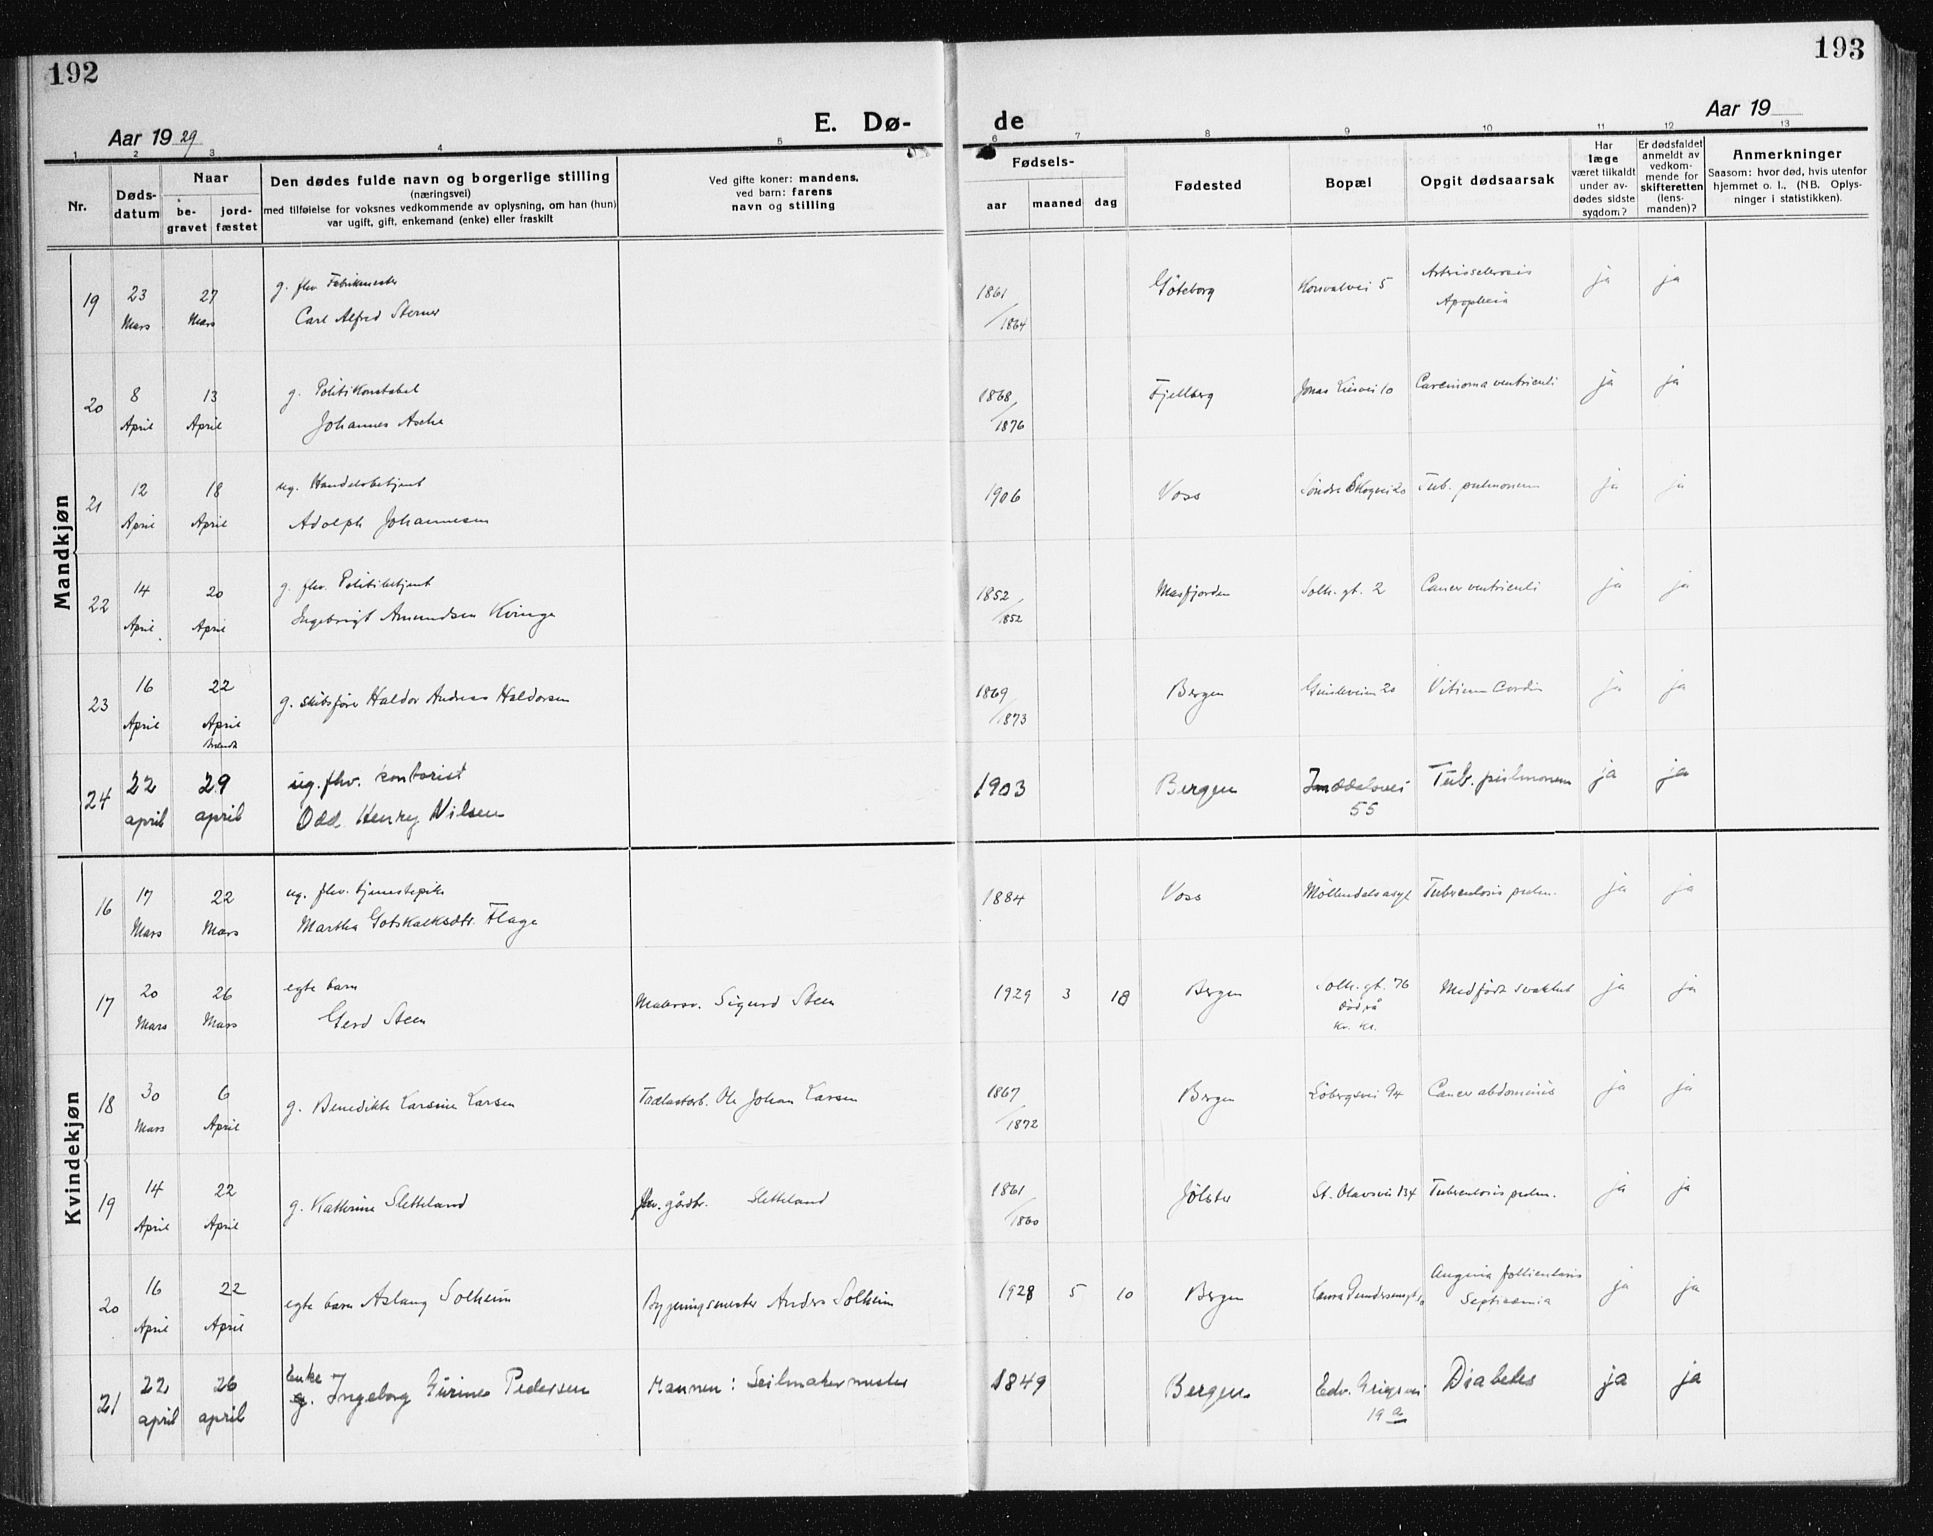 192
193
Aar 1929
E. Dø-
de
Aar 19
1 2 3 4 5 6 7 8 9 10 11 12 13
Nr.
Døds-
datum
Naar
be-
gravet
jord-
fæstet
Den dødes fulde navn og borgerlige stilling
(næringsvei)
med tilføielse for voksnes vedkommende av oplysning, om han (hun)
var ugift, gift, enkemand (enke) eller fraskilt
Ved gifte koner: mandens,
ved barn: farens
navn og stilling
Fødsels-
aar
maaned
dag
Fødested
Bopæl
Opgit dødsaarsak
Har
læge
været tilkaldt
under av-
dødes sidste
sygdom?
Er dødsfaldet
anmeldt av
vedkom-
mende for
skifteretten
(lens-
manden)?
Anmerkninger
Saasom: hvor død, hvis utenfor
hjemmet o. l., (NB. Oplys-
ninger i statistikken).
Mandkjøn
19 23 Mars 27 Mars
g. fhv. Fabrikmester
Carl Alfred Sterner
1861
/1864
Göteborg
Konvalvei 5
Arteriosclerosis
ja ja
20 8 April 13 April
g. Politikonstabel
Johannes Aschе
1868
/1876
Fjellberg
Jonas Liesvei 10
Carcinoma ventriculi
ja ja
21 12 April 18 April
ug. Handelsbetjent
Adolph Johannesen
1906
Voss
Søndre Skogvei 20
Tub. pulmonum
ja ja
22 14 April 20 April
g. fhv. Politibetjent
Ingebrigt Amundsen Kvinge
1852
/1852
Masfjorden
Solh. gt. 2
Cancer ventriculi
ja ja
23 16 April 22 April
brændt
g. skibsfører Haldor Andreas Haldorsen
1869
/1873
Bergen
Vitium Cordis
ja ja
24 22 april 29 april
ug. fhv. kontorist
Odd Henry Nilsen
1903
Bergen
55
Tub. pulmonum
ja ja
Kvindekjøn
16 17 Mars 22 Mars
ug. fhv. tjenestepike
Martha Gotskalksdtr. Flage
1884
Voss
Møllendalsasyl
Tuberculosis pulm.
ja ja
17 20 Mars 26 Mars
egte barn
Gerd Steen
Malersv. Sigurd Steen
1929 3 18
Bergen
Solh. gt. 76
død på
kv. kl.
Medfødt svakhet
ja ja
18 30 Mars 6 April
g. Benedikte Larsine Larsen
Ole Johan Larsen
1867
/1872
Bergen
Løbergsvei 94
Cancer abdominis
ja ja
19 14 April 22 April
g. Kathrine Sletteland
fhv. gårdbr. Sletteland
1861
/1860
Jølster
St. Olavsvei 134
Tuberculosis pulm.
ja ja
20 16 April 22 April
egte barn Aslaug Solheim
Bygningsmester Anders Solheim
1928 5 10
Bergen
Laura Gundersensgt. 10
Angina follicularis
Septicæmia
ja ja
21 22 april 26 april
Enke
g. Ingeborg Gurine Pedersen
Mannen: Seilmakermester
1849
Bergen
Edv. Griegsvei
19 a
Diabetes
ja ja